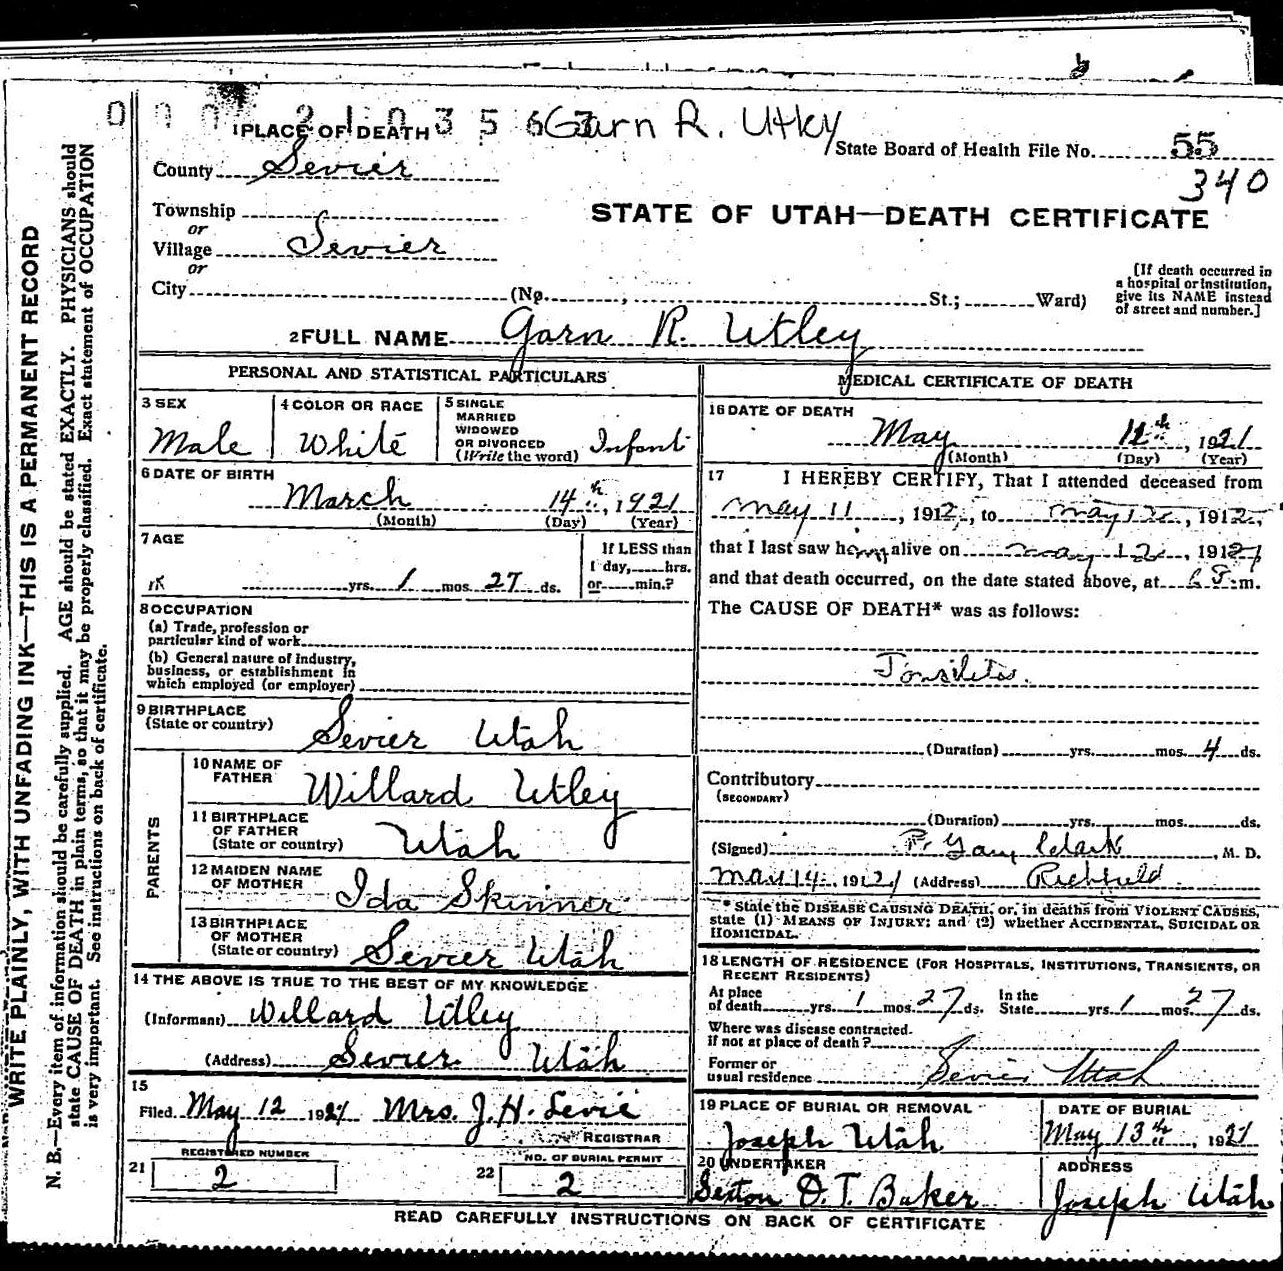 WRITE PLAINLY, WITH UNFADING INK—THIS IS A PERMANENT RECORD
N. B.—Every item of information should be carefully supplied. AGE should be stated EXACTLY. PHYSICIANS should
state CAUSE OF DEATH in plain terms, so that it may be properly classified. Exact statement of OCCUPATION
is very important. See instructions on back of certificate.
Garn R. Utley
1 PLACE OF DEATH
State Board of Health File No. 55
340
County Sevier
STATE OF UTAH—DEATH CERTIFICATE
Township
or
Village Sevier
or
City (No. ; St.; Ward)
[If death occurred in
a hospital or institution,
give its NAME instead
of street and number.]
2 FULL NAME Garn R. Utley
PERSONAL AND STATISTICAL PARTICULARS
3 SEX
Male
4 COLOR OR RACE
White
5 SINGLE
MARRIED
WIDOWED
OR DIVORCED
(Write the word) Infant
6 DATE OF BIRTH
March 14th, 1921
(Month) (Day) (Year)
7 AGE
yrs. 1 mos. 27 ds.
If LESS than
1 day, hrs.
or min.?
8 OCCUPATION
(a) Trade, profession or
particular kind of work
(b) General nature of industry,
business, or establishment in
which employed (or employer)
9 BIRTHPLACE
(State or country) Sevier Utah
PARENTS
10 NAME OF
FATHER Willard Utley
11 BIRTHPLACE
OF FATHER
(State or country) Utah
12 MAIDEN NAME
OF MOTHER Ida Skinner
13 BIRTHPLACE
OF MOTHER
(State or country) Sevier Utah
14 THE ABOVE IS TRUE TO THE BEST OF MY KNOWLEDGE
(Informant) Willard Utley
(Address) Sevier Utah
15
Filed May 12 1921 Mrs. J. H. Levie
REGISTRAR
REGISTERED NUMBER
21 2
NO. OF BURIAL PERMIT
22 2
MEDICAL CERTIFICATE OF DEATH
16 DATE OF DEATH
May 12th, 1921
(Month) (Day) (Year)
17 I HEREBY CERTIFY, That I attended deceased from
May 11, 1912, to May 12, 1912,
that I last saw him alive on May 12, 1921
and that death occurred, on the date stated above, at m.
The CAUSE OF DEATH* was as follows:
Tonsilitis.
(Duration) yrs. mos. 4 ds.
Contributory
(SECONDARY)
(Duration) yrs. mos. ds.
(Signed) Clark, M. D.
May 14, 1921 (Address) Richfield
* State the DISEASE CAUSING DEATH, or, in deaths from VIOLENT CAUSES,
state (1) MEANS OF INJURY; and (2) whether ACCIDENTAL, SUICIDAL OR
HOMICIDAL.
18 LENGTH OF RESIDENCE (FOR HOSPITALS, INSTITUTIONS, TRANSIENTS, OR
RECENT RESIDENTS)
At place
of death yrs. 1 mos. 27 ds.
In the
State yrs. 1 mos. 27 ds.
Where was disease contracted.
if not at place of death?
Former or
usual residence Sevier Utah
19 PLACE OF BURIAL OR REMOVAL
Joseph Utah
DATE OF BURIAL
May 13th, 1921
20 UNDERTAKER
Sexton O. T. Baker
ADDRESS
Joseph Utah
READ CAREFULLY INSTRUCTIONS ON BACK OF CERTIFICATE